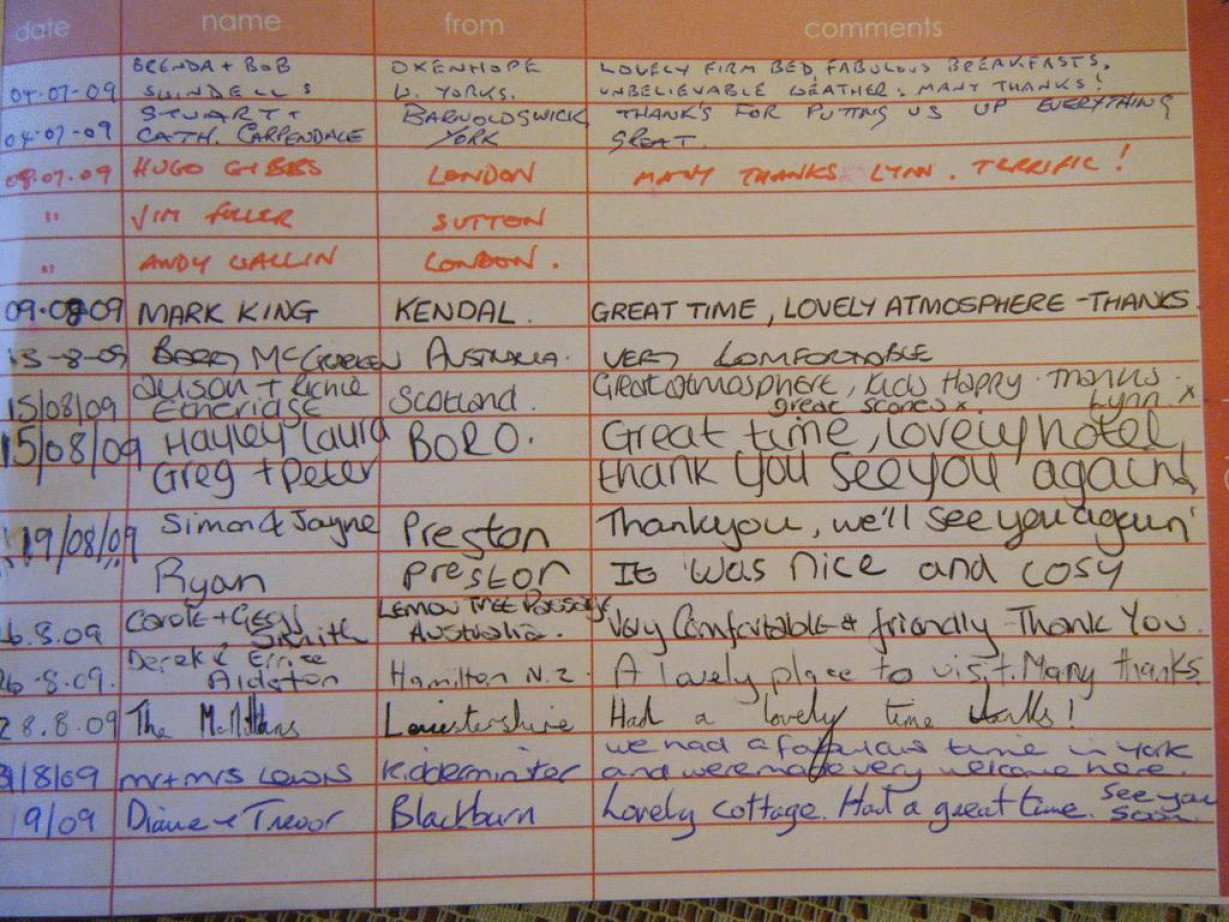 date name from comments
BRENDA + BOB OXENHOPE LOVELY FIRM BED, FABULOUS BREAKFASTS,
04-07-09 SWINDELLS W. YORKS. UNBELIEVABLE WEATHER. MANY THANKS!
STUART + BARNOLDSWICK THANK'S FOR PUTTING US UP EVERYTHING
04-07-09 CATH. CARPENDALE YORK GREAT.
08.07.09 HUGO GIBBS LONDON MANY THANKS LYNN. TERRIFIC!
" JIM FULLER SUTTON
" ANDY WALLIN LONDON.
09.08.09 MARK KING KENDAL. GREAT TIME, LOVELY ATMOSPHERE - THANKS.
13-8-09 AUSTRALIA. VERY COMFORTABLE
Alison + Richie Great atmosphere, kids Happy. Thanks
15/08/09 Etheridge Scotland. great scones x. Lynn. x
15/08/09 Hayley Laura BORO. Great time, lovely hotel,
Greg + Peter thank you see you again!
19/08/09 Simon & Jayne Preston Thankyou, we'll see you again!
Ryan Preston It was nice and cosy
Carole + Geoff LEMON TREE PASSAGE
6.8.09 Smith Australia. Very Comfortable & friendly - Thank You.
Derek &
26-8.09. Hamilton N.Z. A lovely place to visit. Many thanks.
28.8.09 The McMillans Leicestershire Had a lovely time thanks!
we had a fabulous time in York
31/8/09 mr + mrs Lewis Kidderminster and were made very welcome here.
19/09 Diane & Trevor Blackburn Lovely cottage. Had a great time. See you
soon.